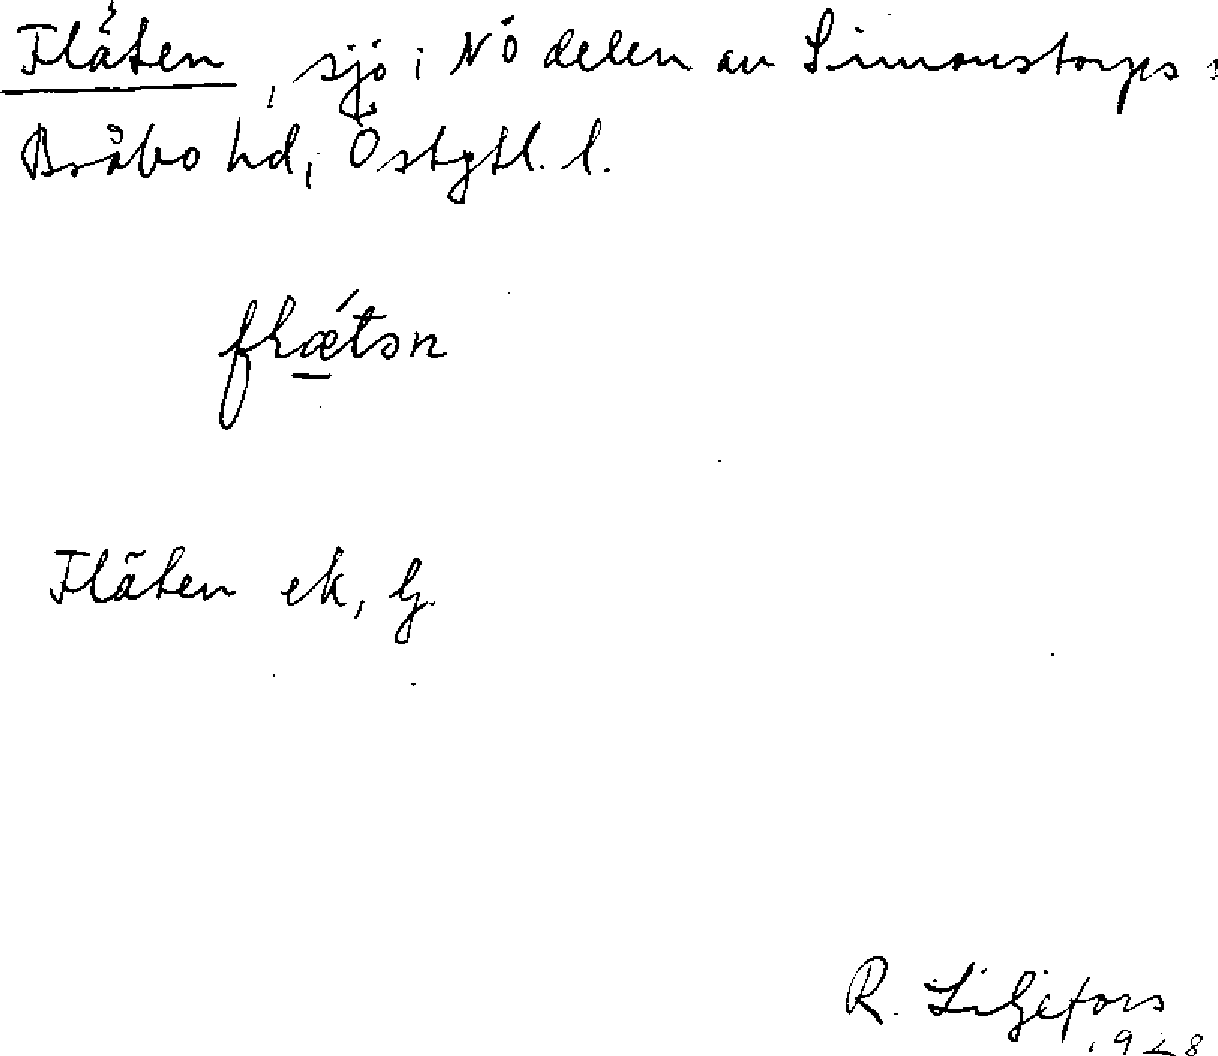 Fläten, sjö i NÖ delen av Simonstorps s
Bråbo hd, Östgtl. l.
flǽ̲tən
Fläten ek, G
R. Liljefors
1928